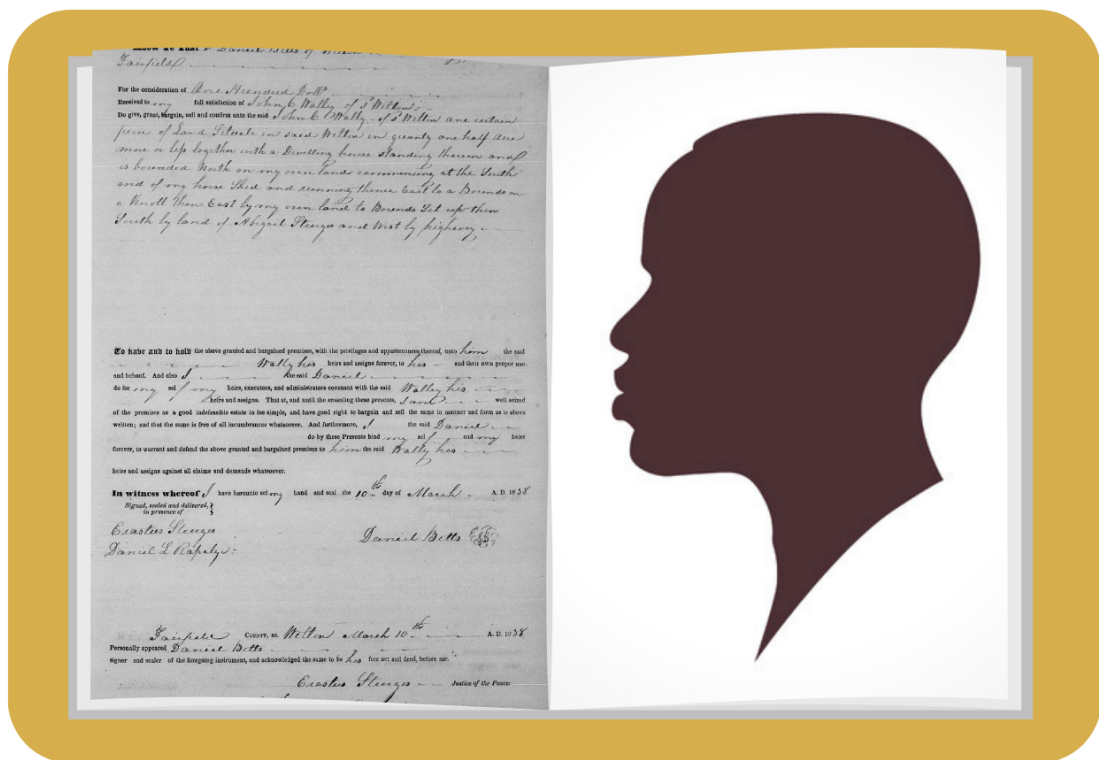 Know Ye That I Daniel Betts of Wilton
Fairfield
For the consideration of One Hundred Doll.s
Received to my full satisfaction of John C Wally of s.d Wilton
Do give, grant, bargain, sell and confirm unto the said John C Wally of s.d Wilton one certain
piece of Land Situate in said Wilton in quanty one half Acre
more or less together with a Dwelling house standing thereon and
is bounded North on my own land commencing at the South
end of my horse Shed and running thence East to a Bounds on
a Knoll then East by my own land to Bounds Set up then
South by land of Abigail Sturges and West by highway
To have and to hold the above granted and bargained premises, with the privileges and appurtenances thereof, unto him the said
Wally his heirs and assigns forever, to his and their own proper use
and behoof. And also I the said Daniel
do for my self my heirs, executors, and administrators covenant with the said Wally his
heirs and assigns. That at, and until the ensealing these presents, I am well seized
of the premises as a good indefeasible estate in fee simple, and have good right to bargain and sell the same in manner and form as is above
written; and that the same is free of all incumbrances whatsoever. And furthermore, I the said Daniel
do by these Presents bind my self and my heirs
forever, to warrant and defend the above granted and bargained premises to him the said Wally his
heirs and assigns against all claims and demands whatsoever.
In witness whereof I have hereunto set my hand and seal the 10th day of March A. D. 1838
Signed, sealed and delivered,
in presence of
Erastus Sturges
Daniel Betts
Daniel L Rapelye
Fairfield County, ss. Wilton March 10th A. D. 1838
Personally appeared Daniel Betts
signer and sealer of the foregoing instrument, and acknowledged the same to be his free act and deed, before me.
Erastus Sturges Justice of the Peace.